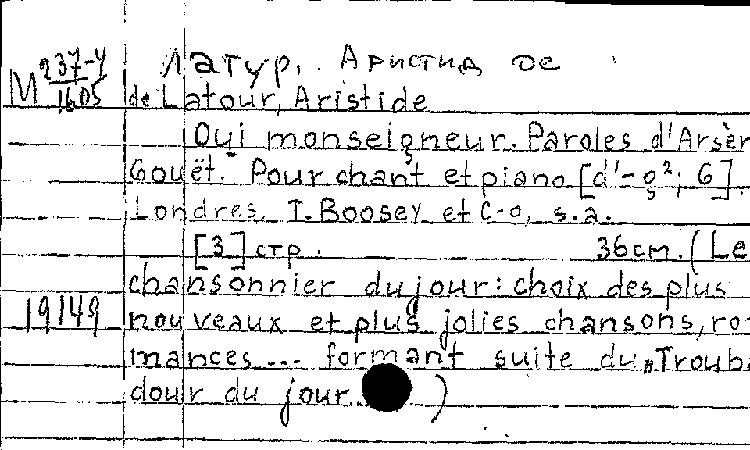 М 237-у/1605 Латур, Аристид де
de Latour, Aristide
Oui monseigneur. Paroles d'Arsèn
Gouët. Pour chant et piano [d'-g²; G].
Londres, T. Boosey et C-o, s.a.
[3] стр. 36 см. (Le
chansonnier du jour: choix des plus
19149 nouveaux et plus jolies chansons, ro
mances... formant suite du „Trouba
dour du jour )